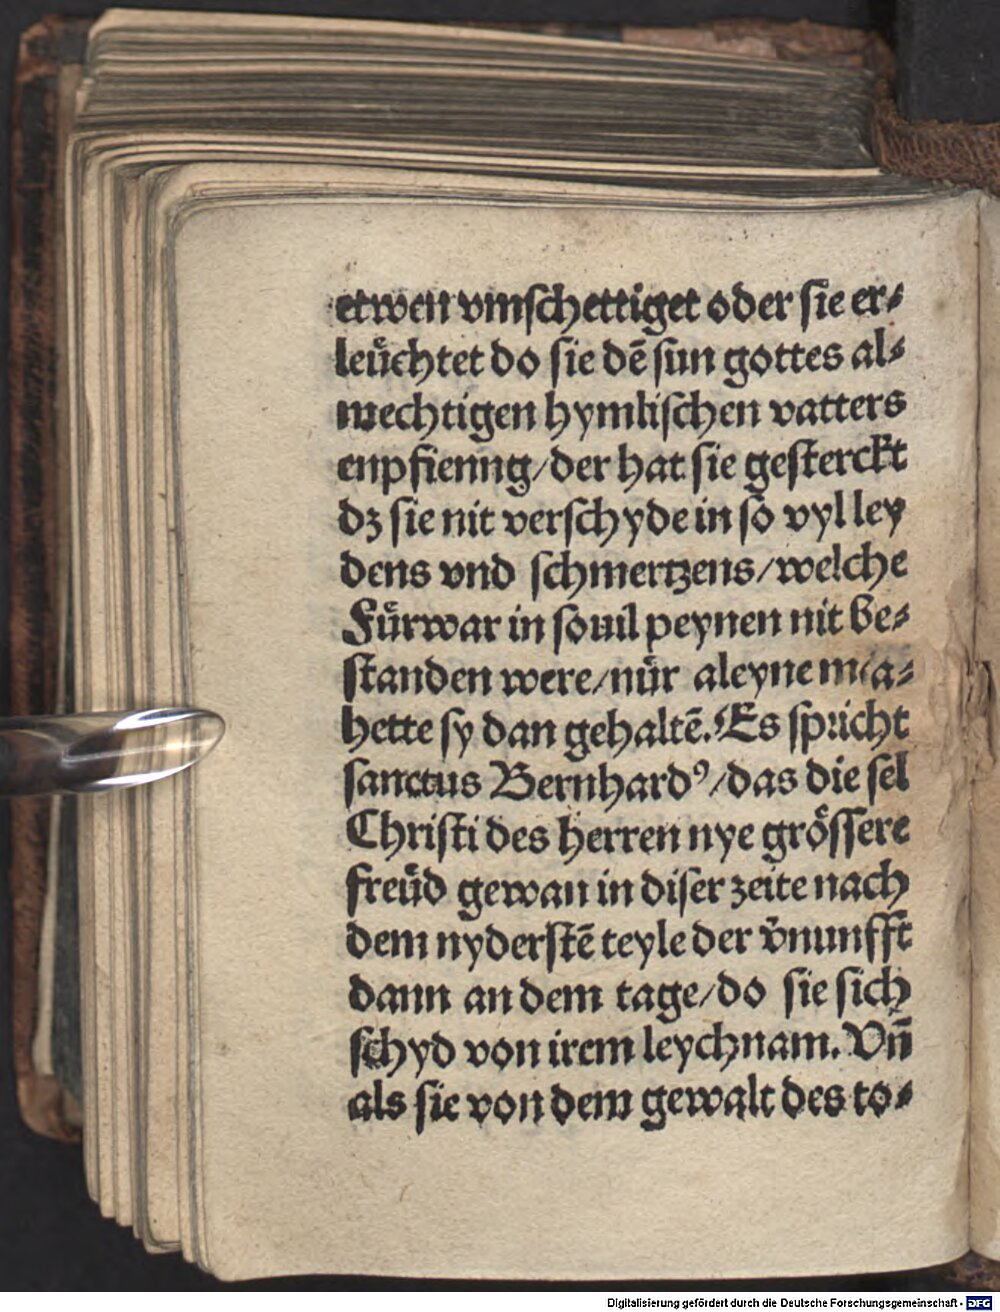 etwen vmschettiget oder sie er⸗
leüchtet do sie dē sun gottes al⸗
mechtigen hymlischen vatters
enpfienng/der hat sie gesterckt
dz sie nit verschyde in so vyl ley
dens vnd schmertzens/welche
Fürwar in souil peynen nit be⸗
standen were/nür aleyne
hette sy dan gehaltē. Es spricht
sanctus Bernhardꝰ/das die sel
Christi des herren nye grössere
freüd gewan in diser zeite nach
dem nyderstē teyle der v̄nunfft
dann an dem tage/do sie sich
schyd von irem leychnam. Vn̄
als sie von dem gewalt des to⸗
Digitalisierung gefördert durch die Deutsche Forschungsgemeinschaft - DFG